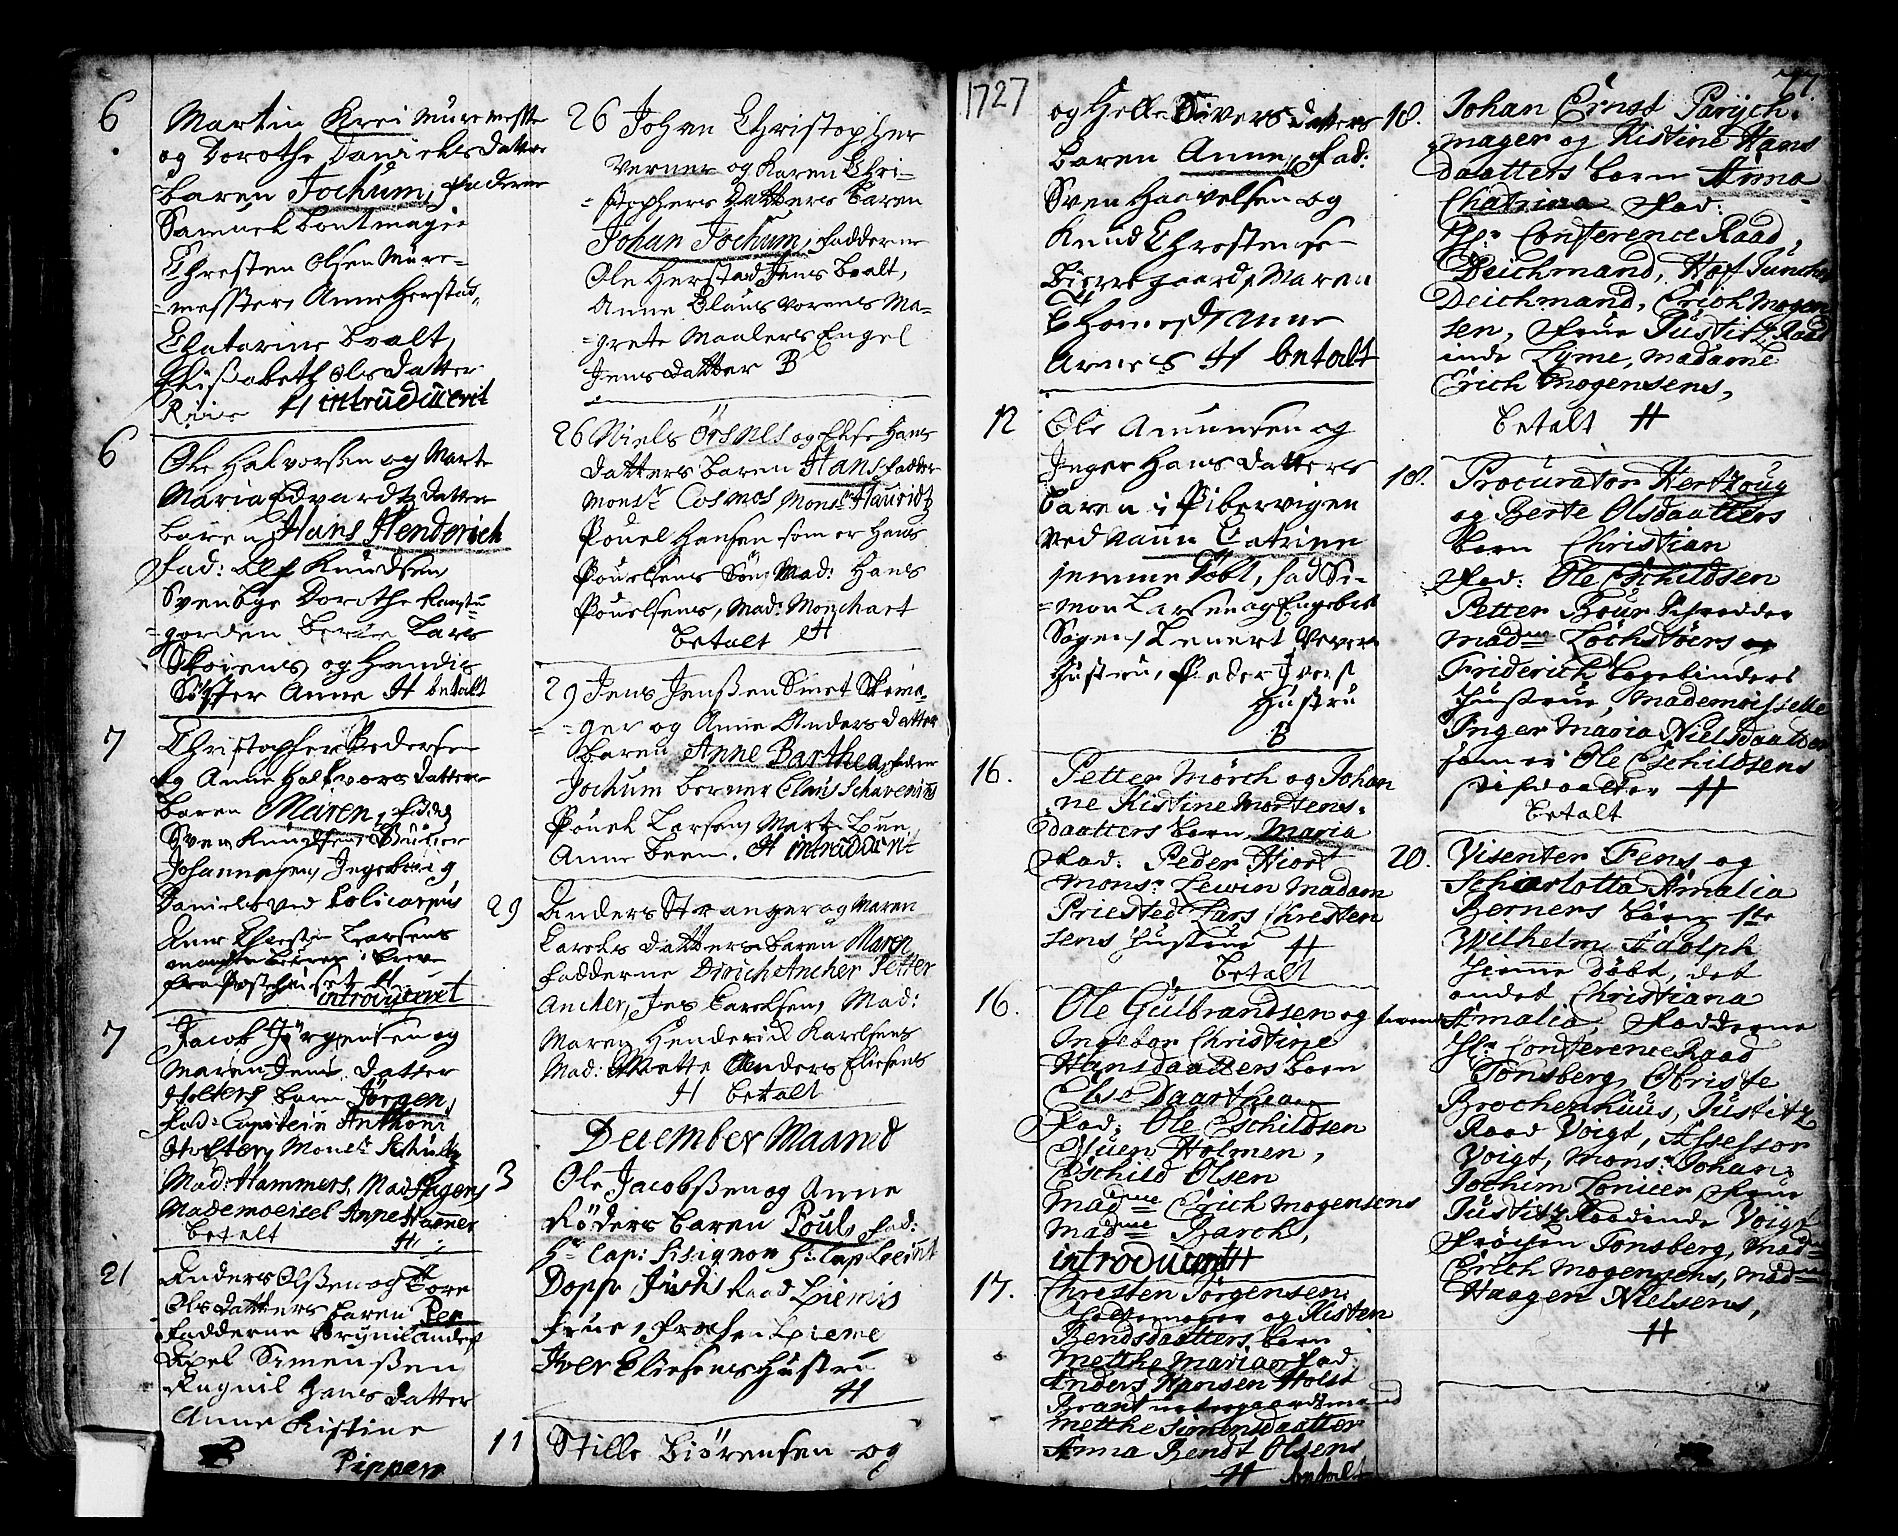 6 Martin Krei Muremeste
og Dorothe Danielsdatter
baren Jochum, faderne
Samuel bontmager
Chresten Olsen Mure-
-mester, Anne Herstad,
Chatarine bvalt,
Elisabeth Olsdatter
H introducerit
6 Ole Halvorsen og Marte
Maria Edvardtz datter
baren Hans Henderich
Fad: Knudsen
Svenbye Dorothe
-gorden, berte Lars
Skoiens, og
Søster Anne H betalt
7 Christopher Pedersen
og Anne Halfvors datter
baren Maren, fadd
Sven Knudsen,
Johannesen, Ingeborig
Daniels ved Policarpus
Ane Larsens
fra Posthuset H
introduceret
7 Jacob Jørgensen og
Maren Jens datter
Holters barn Jørgen,
Fad: Capitein Anthoni
Holter, Monsr Schultz
Mad: Hammers, Mad
Mademoeisel Anne Hammer
betalt H
21 Anders Olsen og Tore
Olsdatters baren Per
Fadderne Brynil Anders
Axel Simensen
Ragnil Hans datter
Anne Kistine
Pipper
26 Johan Christopher
Verner og Karen Chri-
-stophers datters baren
Johan Jochum, fadderne
Ole Herstad Jens bvalt,
Anne Claus Vorens Ma-
-grete Maalers Engel
Jens datter B
26 Niels Örsnes og Else Hans
datters baren Hans fadder
Monsr Cosmos Monsr Hauridtz
Pouel Hansen som er Hans
Pouelsens Søn, Mad: Hans
Pouelsens, Mad: Monchart
betalt H
29 Jens Jensen Smet Skoma-
-ger og Anne Anders datter
baren Anne Barthea, fadder
Jochum berner Claus Schavenius
Pouel Larsen, Marte Lun
Anne beem. H introducerit
29 Anders Stranger og Maren
Carels datters baren Maren
fadderne Dirich Ancher Petter
Ancher, Jes Carelsen, Mad:
Maren Henderich Karelsens
Mad: Mette Anders Eliesens
H betalt
December Maand
3 Ole Jacobsen og Anne
Røders baren Poul, Fad:
Hr Cap: Hr Cap Leeint
Dopp, Justis Raad Lieme
Frue, frøken Lieme
Iver Eliesens Hustru
H
11 Stille Biörensen og
1727
og Helle Sivers datters
baren Anne, Fad:
Sven Haavelsen og
Knud Christense
Bierregaard, Maren
Thomes, Anne
Arnes H betalt
12 Ole Amundsen og
Inger Hans datters
baren i Pibervigen
ved navn Catrine
jemme Döbt, fad Si-
-mon Larsen og Engebret
Sagen, Lenert Verers
Hustru, Peder Iverst
Hustru
B
16. Petter Mörch og Johan
ne Kistine Mortens-
daatters barn Maria
Fad: Peder Hiort
Monsr Lewin Madam
Priested Lars Chresten
sens Hustrue H
betalt
16. Ole Gulbrandsen og
Ingebor Christine
Hansdaatters barn
Else Daarthea
Fad: Ole Eschildsen
Suen Holmen,
Eschild Olsen
Madme Erich Mogensens
Madme Barch,
introducerit H
17. Chresten Jörgensen
og Kisten
Bendsdaatters barn
Metthe Maria Fad
Anders Hansen Holst
Brant
Metthe Simensdaatter
Anna Bendt Olsens
H betalt
77.
18. Johan Ernst Parych-
mager og Kistine Hans
daatters barn Anna
Chatrina Fad:
Hr Conference Raad
Deichmand, Hof Juncher
Deichmand, Erich Mogen
sen, Frue Justitz Raad
inde Lyme, Madame
Erich Mogensens,
betalt H
18. Procurator Hertzoug
og Berte Olsdaatters
barn Christian
Fad: Ole Eschildsen
Petter Bour Schredder
Madme Löchstöers
Friderich bogbinders
Hustrue, Mademoisselle
Inger Maria Nielsdaatter
som er Ole Eschildsens
Stifdaatter H
betalt
20. Visenter Fens og
Scharlotta Amalia
Berners börn 1ste
Wilhelm Adolph
Hiemme döbt, det
andet Christiana
Amalia, Fadderne
Hr Conference Raad
Tonsberg, Obriste
Brochenhuus, Justitz
Raad Voigt, Assessor
Voigt, Monsr Johan
Jochim Lonicer Frue
Justitz Raadinde Voigt
Fröchen Tonsberg, Madme
Erich Mogensens, Madme
Haagen Nielsens,
H